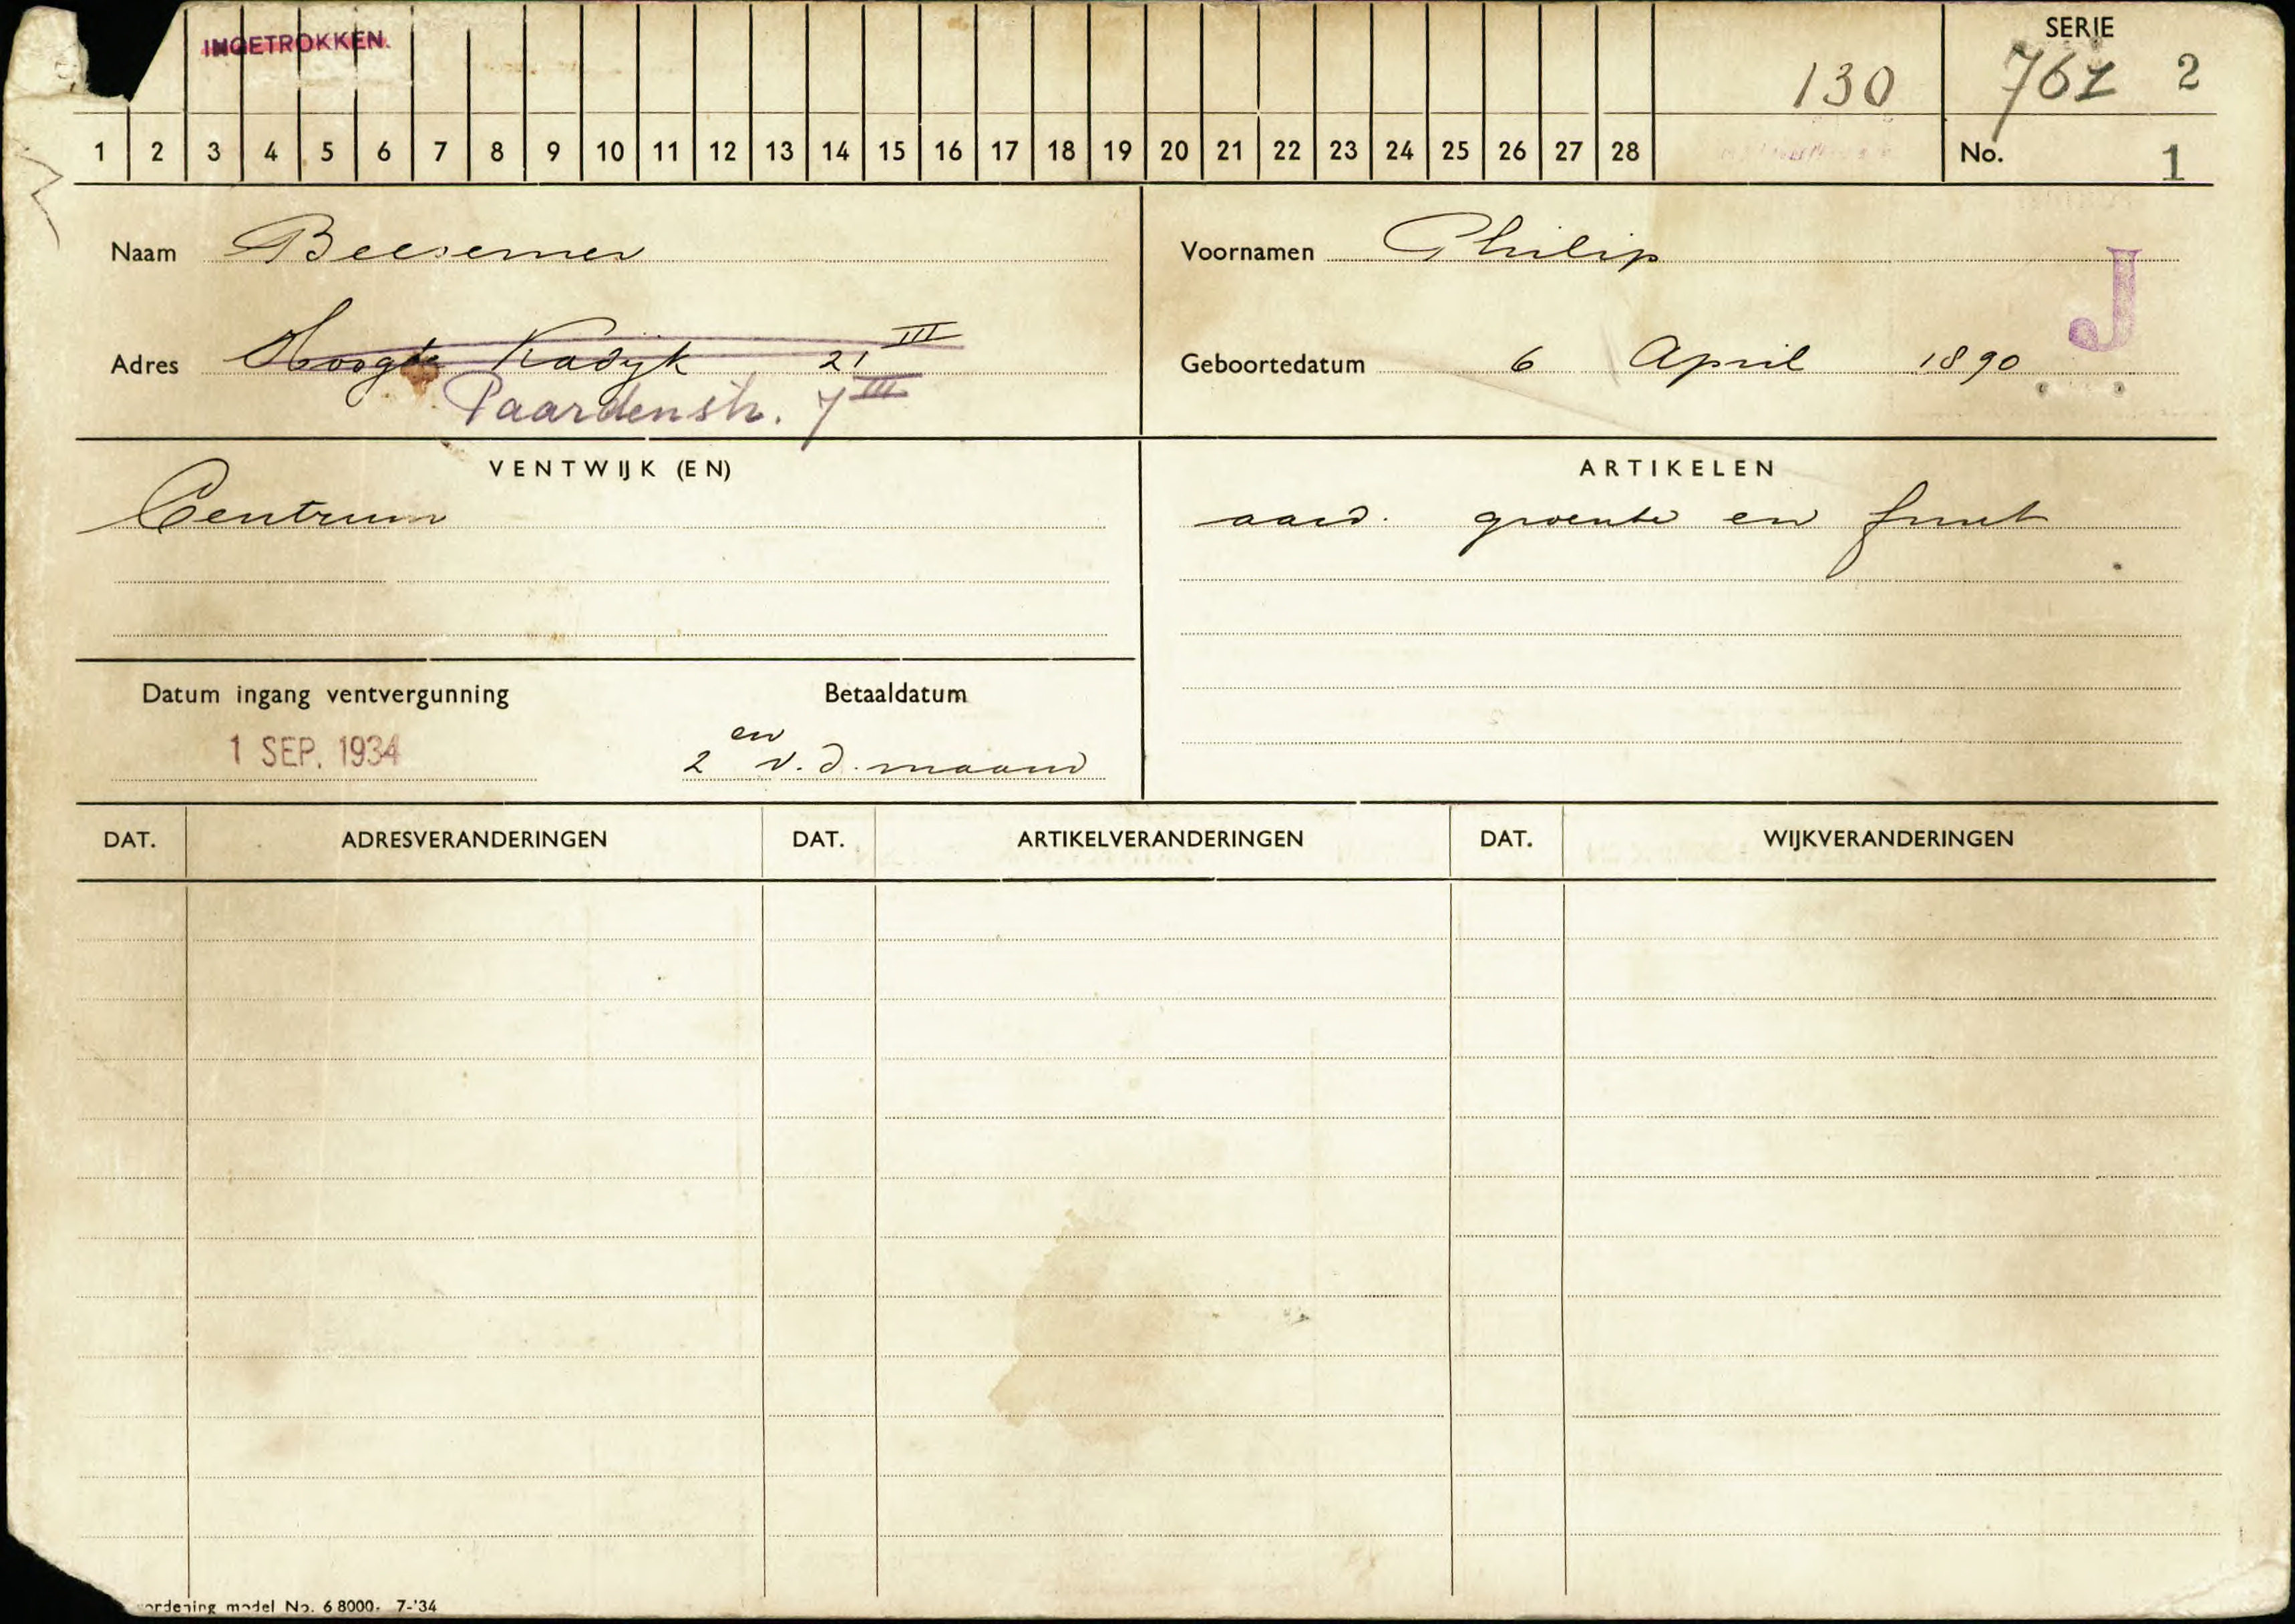 INGETROKKEN.
SERIE
130 761 2
1 2 3 4 5 6 7 8 9 10 11 12 13 14 15 16 17 18 19 20 21 22 23 24 25 26 27 28
No. 1
Naam Beesemer
Voornamen Philip
J
Adres Hoogte Kadijk 21 III
Paardenstr. 7 III
Geboortedatum 6 April 1890
VENTWIJK (EN)
Centrum
ARTIKELEN
aard. groente en fruit
Datum ingang ventvergunning
1 SEP. 1934
Betaaldatum
2 en v.d. maand
DAT. ADRESVERANDERINGEN DAT. ARTIKELVERANDERINGEN DAT. WIJKVERANDERINGEN
ordening model No. 6 8000- 7-'34